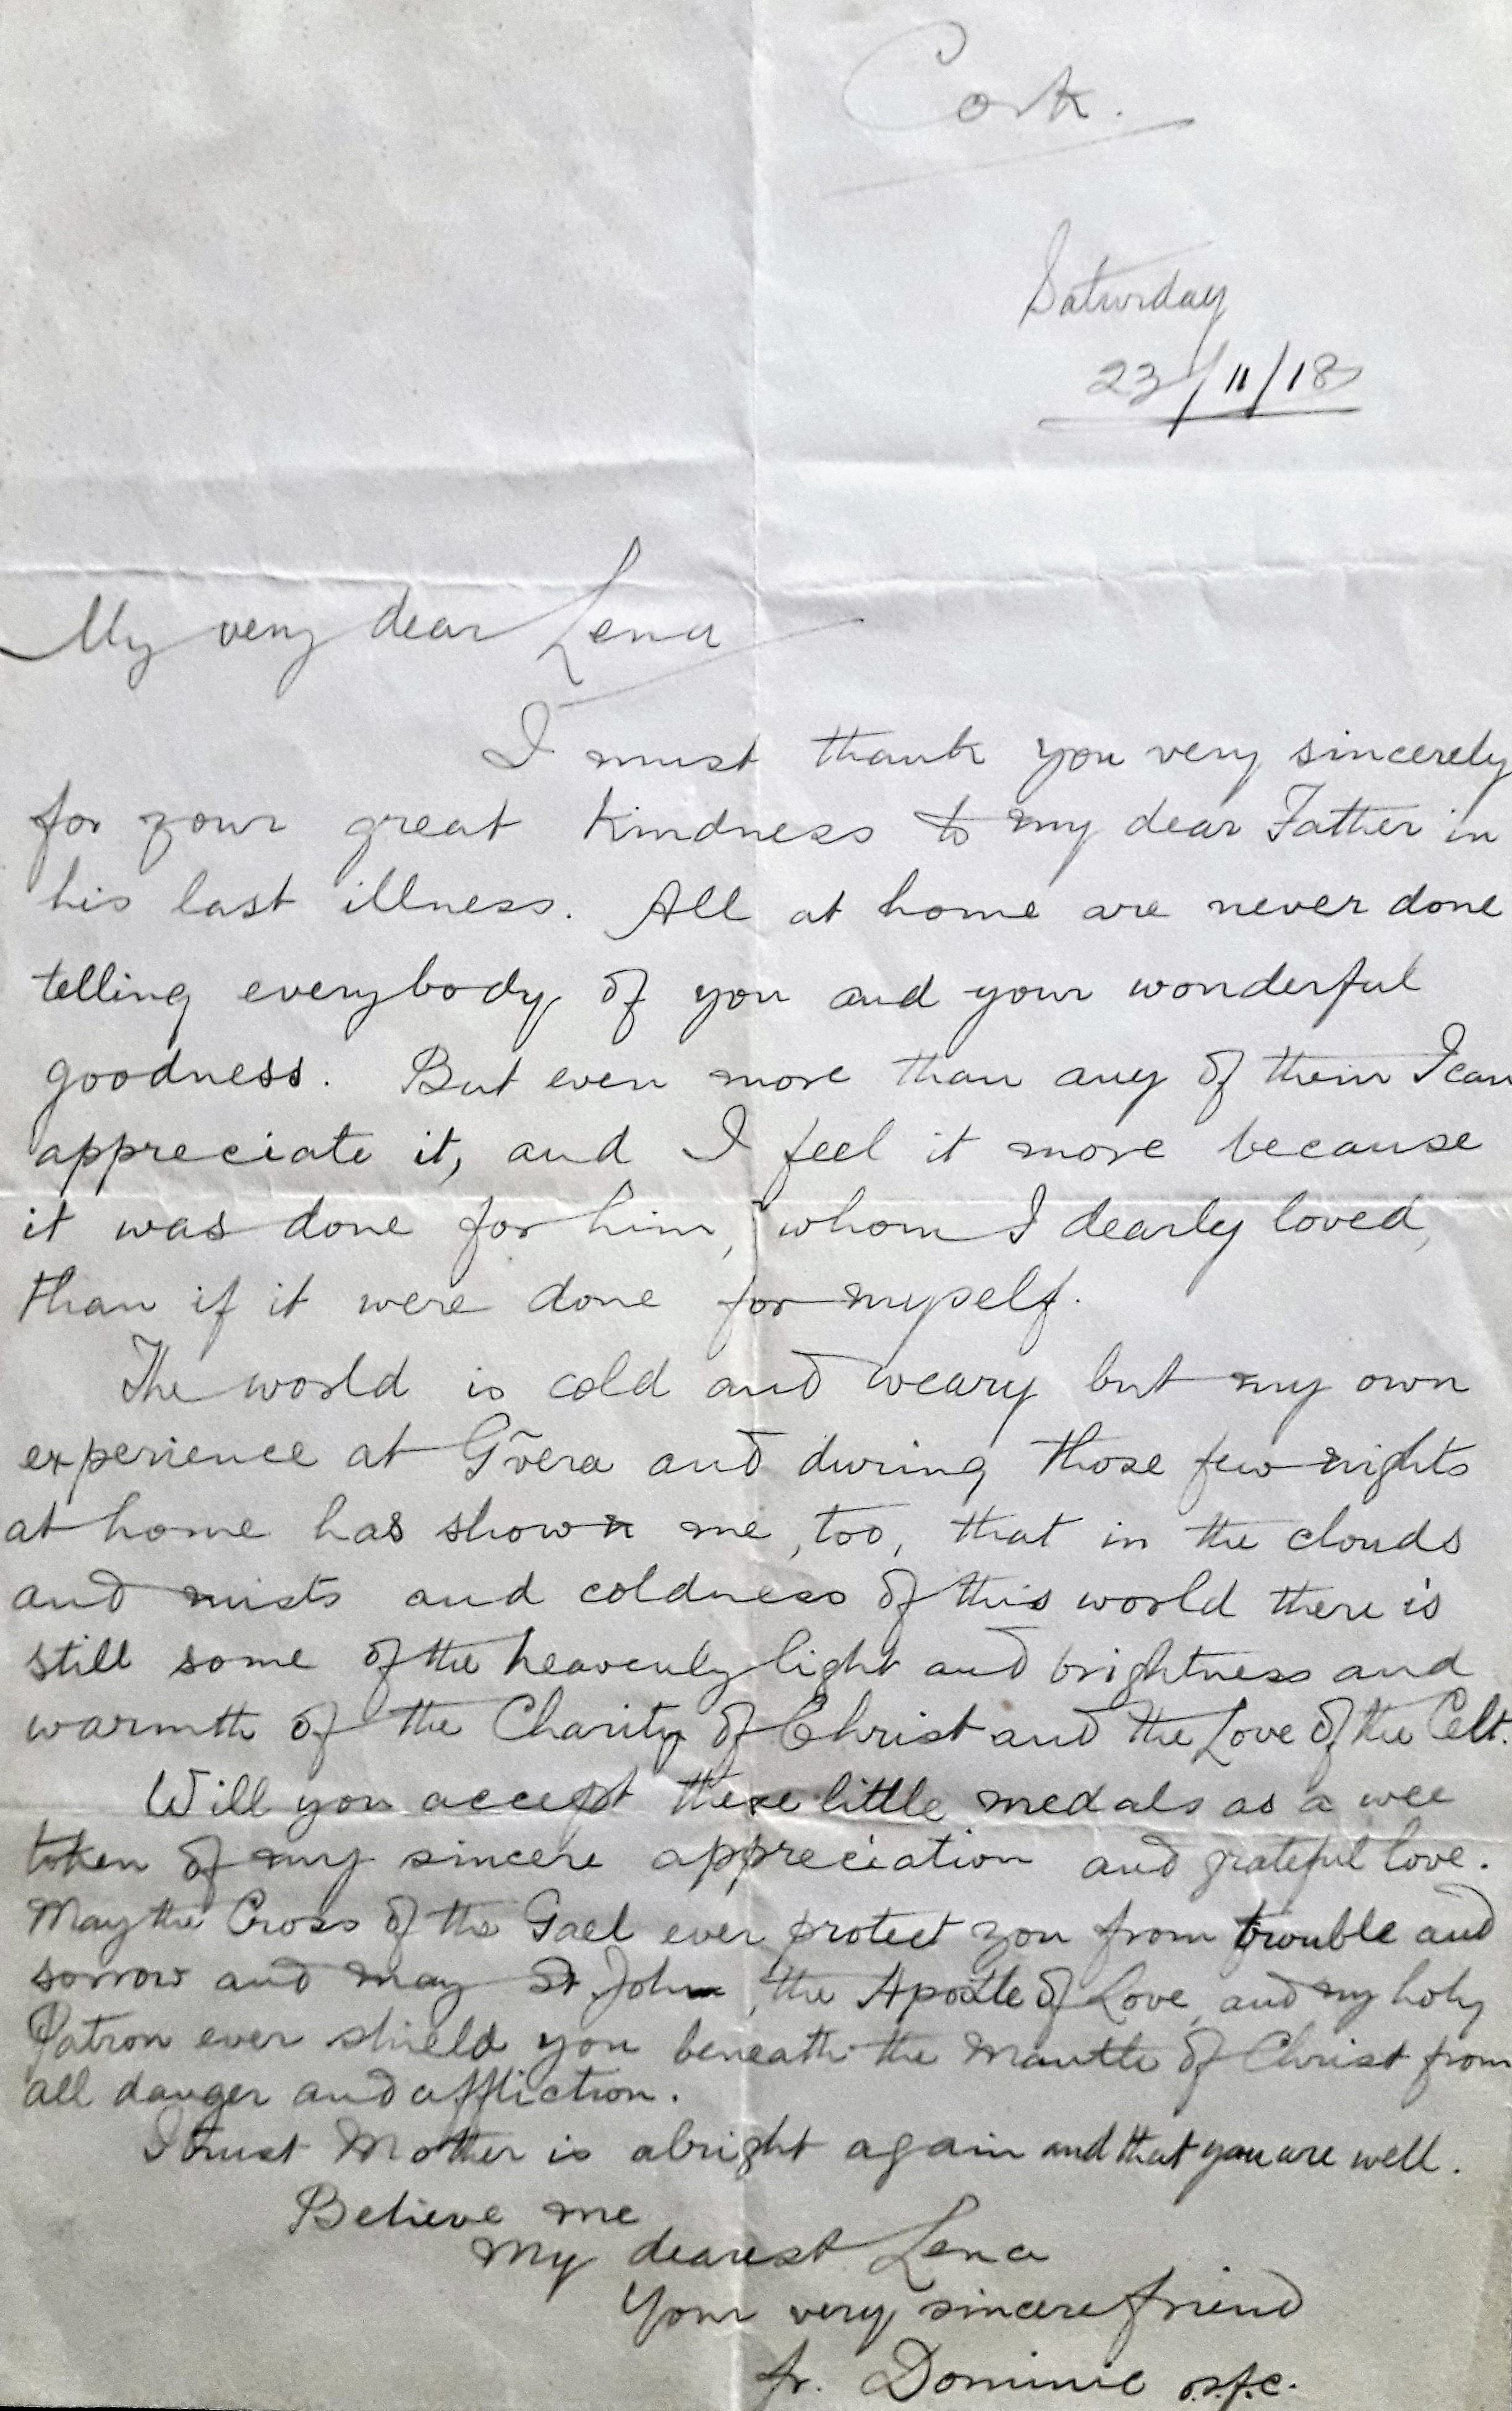 Cork.
Saturday
23/11/18
My very dear Lena
I must thank you very sincerely
for your great kindness to my dear Father in
his last illness. All at home are never done
telling everybody of you and your wonderful
goodness. But even more than any of them I can
appreciate it, and I feel it more because
it was done for him, whom I dearly loved,
than if it were done for myself.
The world is cold and weary but my own
experience at and during those few nights
at home has shown me, too, that in the clouds
and mists and coldness of this world there is
still some of the heavenly light and brightness and
warmth of the Charity of Christ and the Love of the Celt.
Will you accept these little medals as a wee
token of my sincere appreciation and grateful love.
May the Cross of the Gael ever protect you from trouble and
sorrow and may St. John, the Apostle of Love, and my holy
Patron ever shield you beneath the Mantle of Christ from
all danger and affliction.
I trust Mother is alright again and that you are well.
Believe me
My dearest Lena
Your very sincere friend
fr. Dominic o.s.f.c.